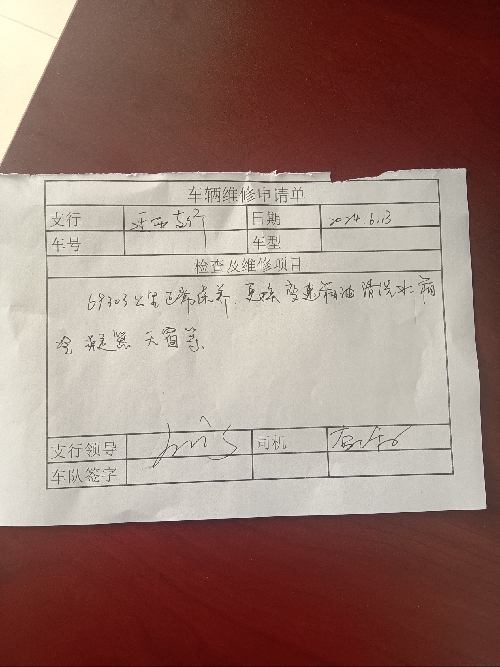 车辆维修申请单
支行 支行 日期 2024.6.13
车号 车型
检查及维修项目
69303公里正常保养.更换变速箱油清洗水箱
天窗等
支行领导 司机
车队签字